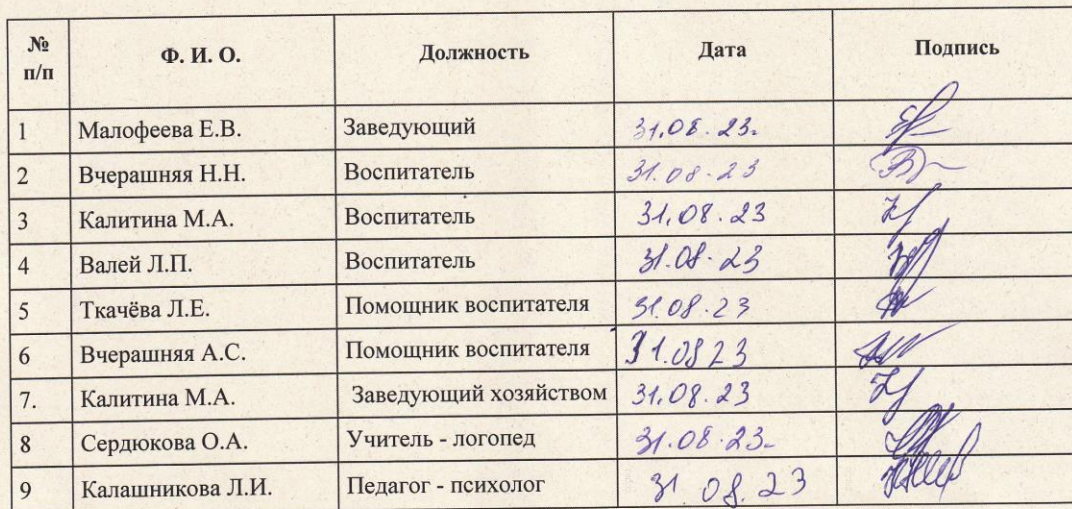 № п/п Ф. И. О. Должность Дата Подпись
1 Малофеева Е.В. Заведующий 31.08.23.
2 Вчерашняя Н.Н. Воспитатель 31.08.23
3 Калитина М.А. Воспитатель 31.08.23
4 Валей Л.П. Воспитатель 31.08.23
5 Ткачёва Л.Е. Помощник воспитателя 31.08.23
6 Вчерашняя А.С. Помощник воспитателя 31.0823
7. Калитина М.А. Заведующий хозяйством 31.08.23
8 Сердюкова О.А. Учитель - логопед 31.08.23.
9 Калашникова Л.И. Педагог - психолог 31.08.23